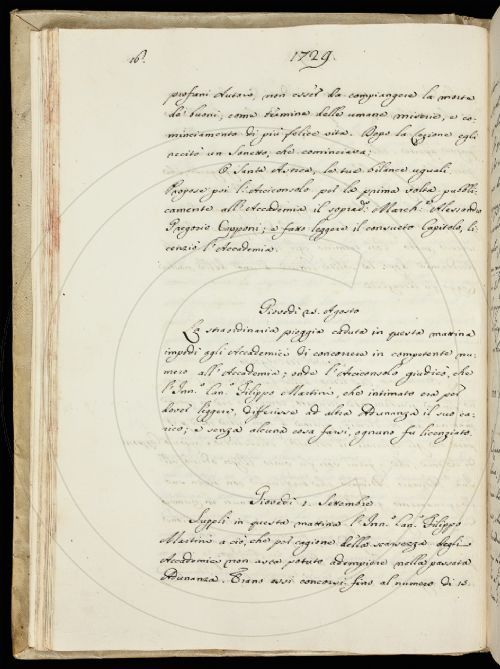 16.
1729.
profani Autori, non esser da compiangere la morte
de' buoni; come termine delle umane miserie, e co-
minciamento di più felice vita. Dopo la Lezione egli
recitò un Sonetto, che cominciava:
O Santa Astrea, le tue bilance uguali.
Propose poi l'Arciconsolo per la prima volta pubbli-
camente all'Accademia il soprad.º March.e Alessandro
Gregorio Capponi; e fatto leggere il consueto Capitolo, li-
cenziò l'Accademia.
Giovedì 25. Agosto
La straordinaria pioggia caduta in questa mattina
impedì agli Accademici di concorrere in competente nu-
mero all'Accademia; onde l'Arciconsolo giudicò, che
l'Inn.º Can.º Filippo Martini, che intimato era per
dover leggere, differisse ad altra Adunanza il suo ca-
rico; e senza alcuna cosa farsi, ognuno fu licenziato.
Giovedì 1. Settembre
Supplì in questa mattina l'Inn.º Can.º Filippo
Martini a ciò, che per cagione della scarsezza degli
Accademici non avea potuto adempiere nella passata
Adunanza. Erano essi concorsi fino al numero di 15.